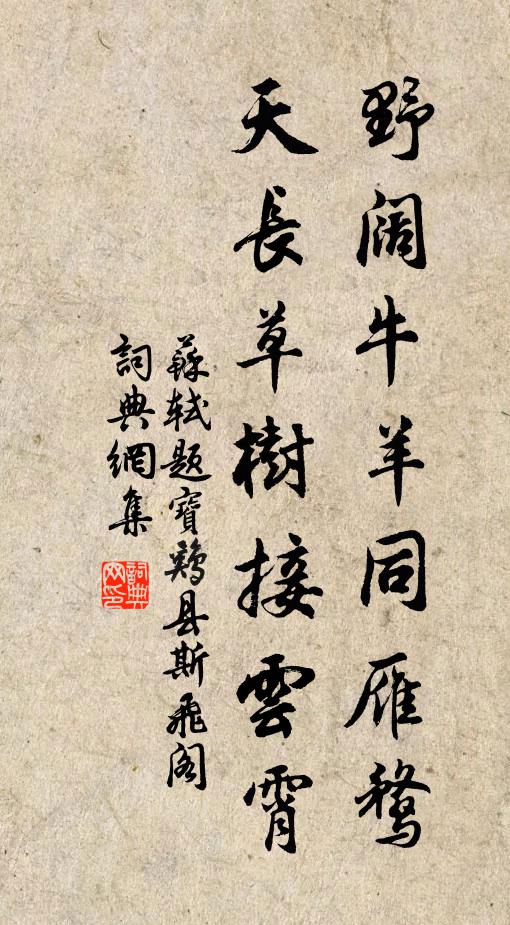 野阔牛羊同雁鹜
天長草樹接雲霄
蘇軾題寶鷄县斯飛阁
詞典網集
詞典网印